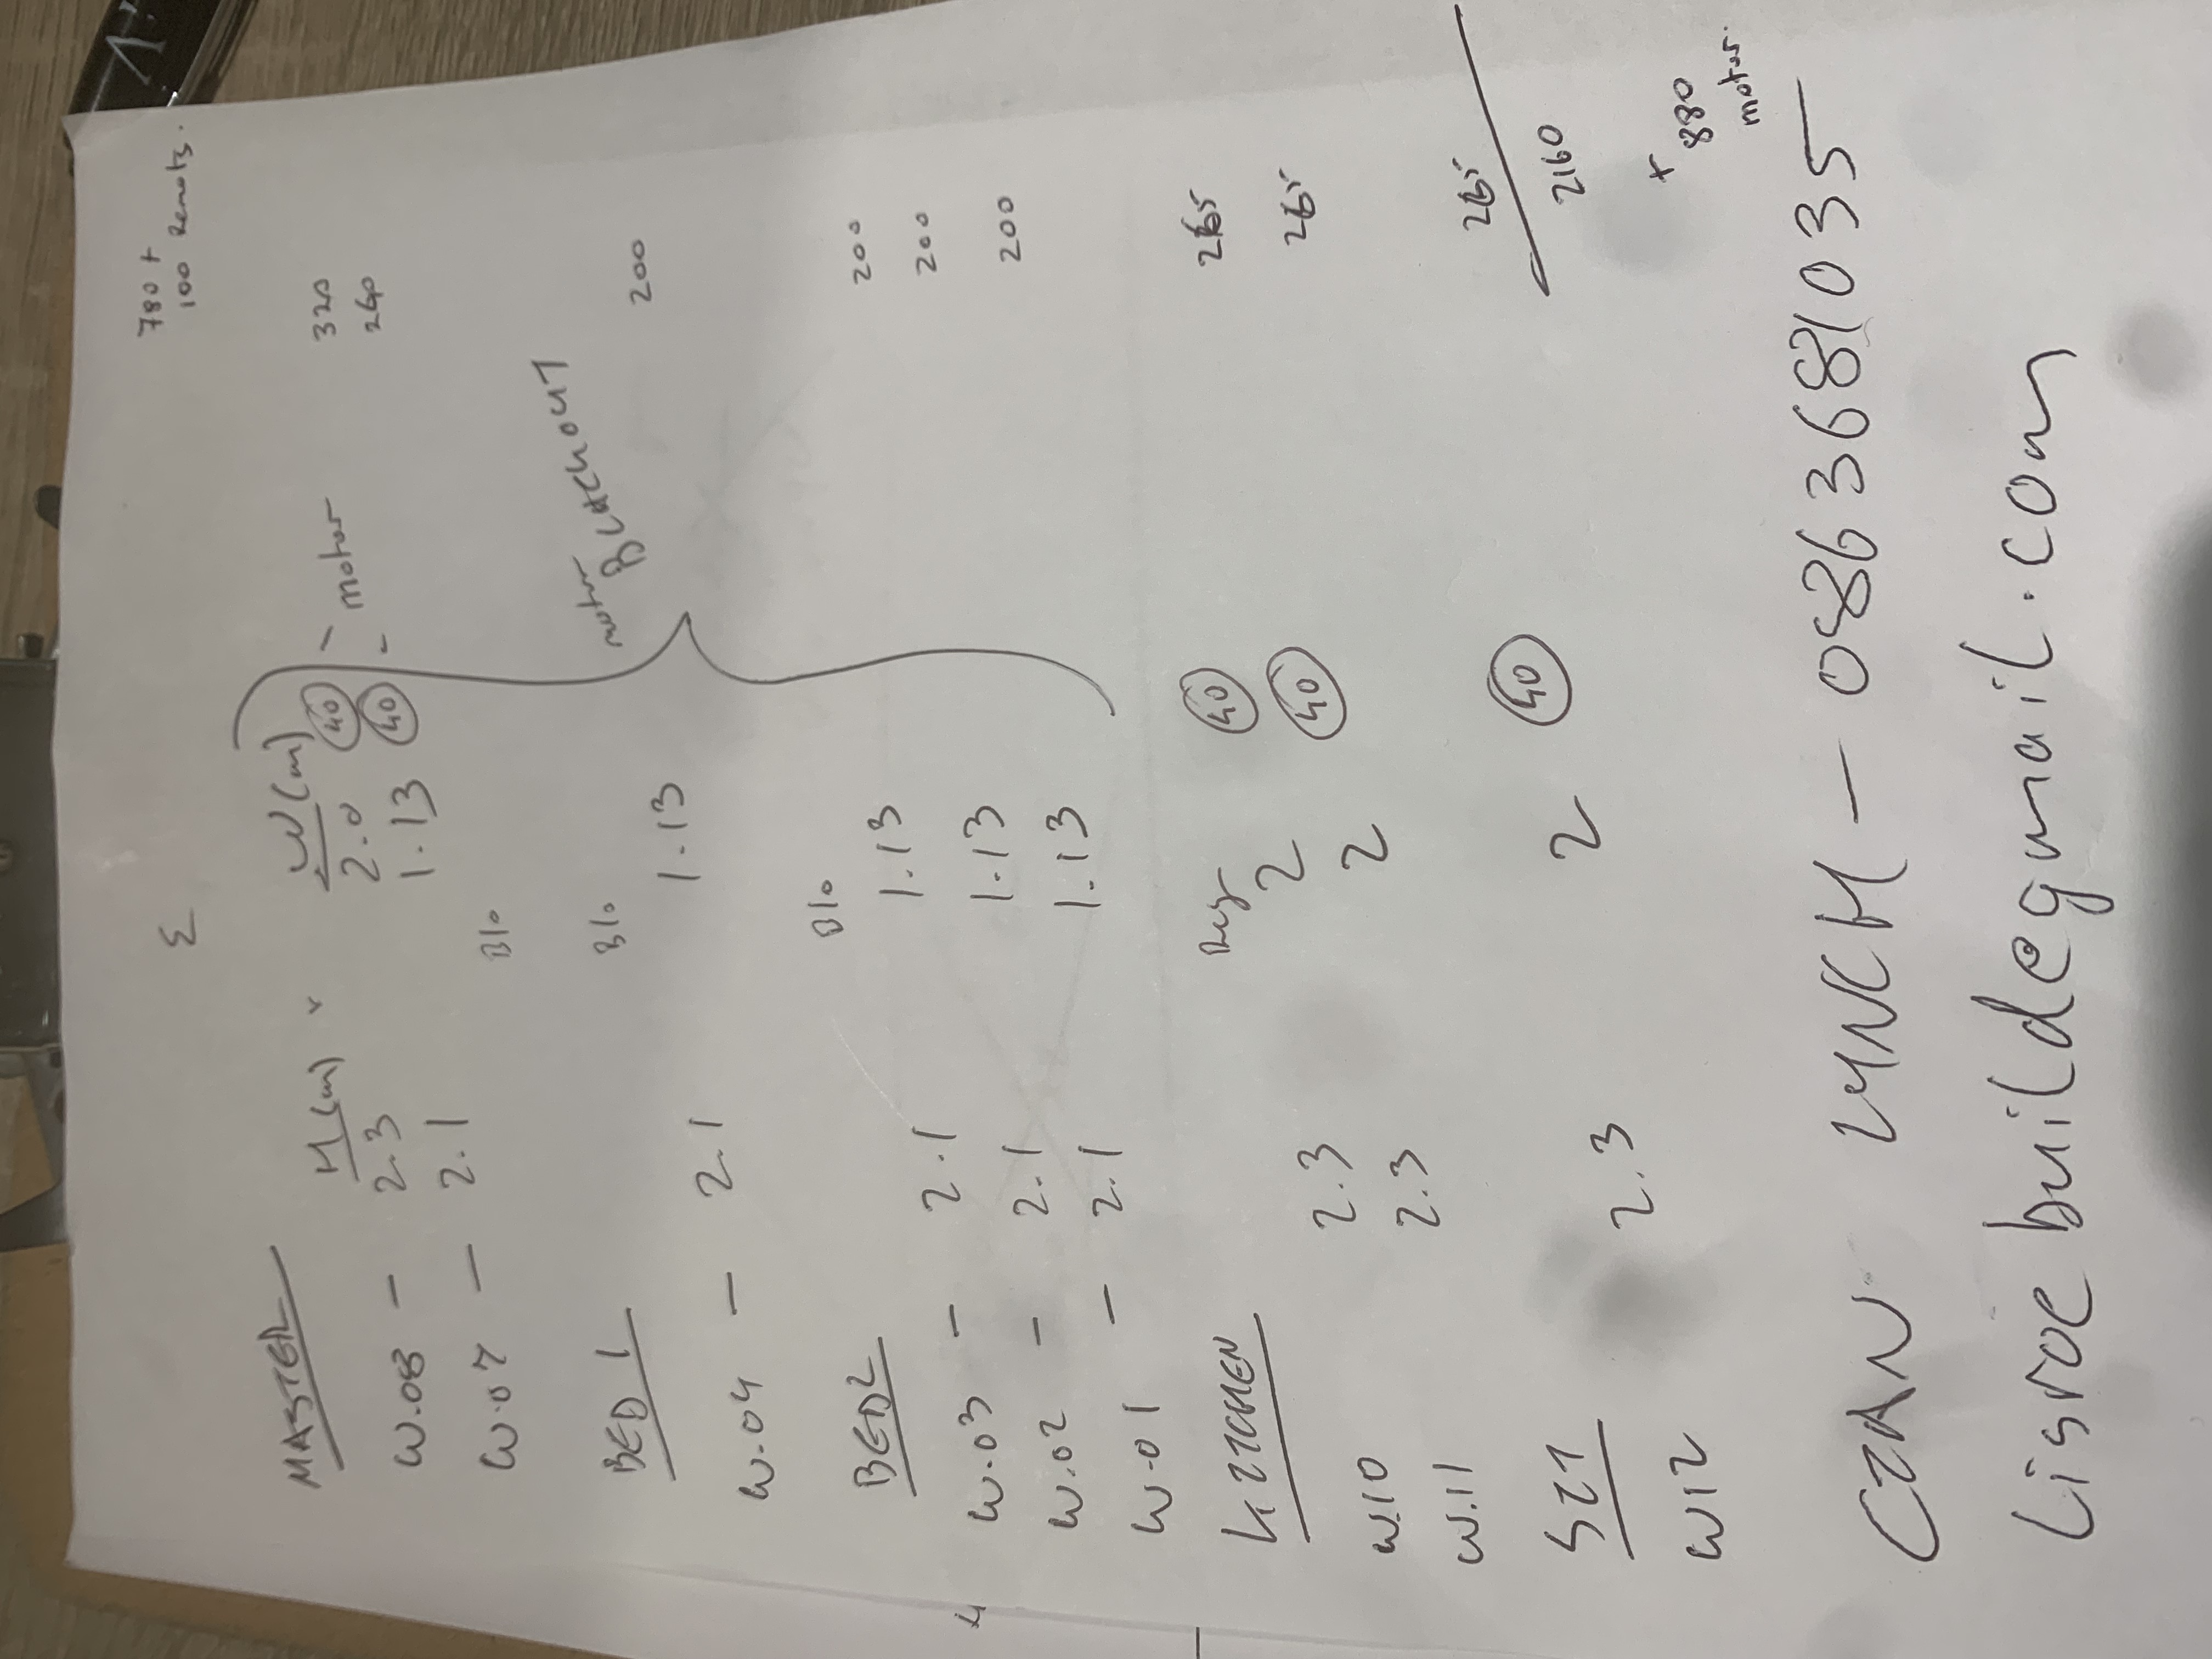 780 +
100 Remots.
Σ
H (m) x W (m)
MASTER
W.08 - 2.3 2.0 40 - motor 320
W.07 - 2.1 1.13 40 - 260
B/o
motor BLACKOUT
BED 1 B/o
W.04 - 2.1 1.13 200
BED2 B/o
W.03 - 2.1 1.13 200
W.02 - 2.1 1.13 200
W.01 - 2.1 1.13 200
KITCHEN
W.10 2.3 2 40 265
W.11 2.3 2 40 265
SIT
W12 2.3 2 40 265
2160
+
880
motor.
CIAN LYNCH - 0863681035
Lisroe build@gmail.com